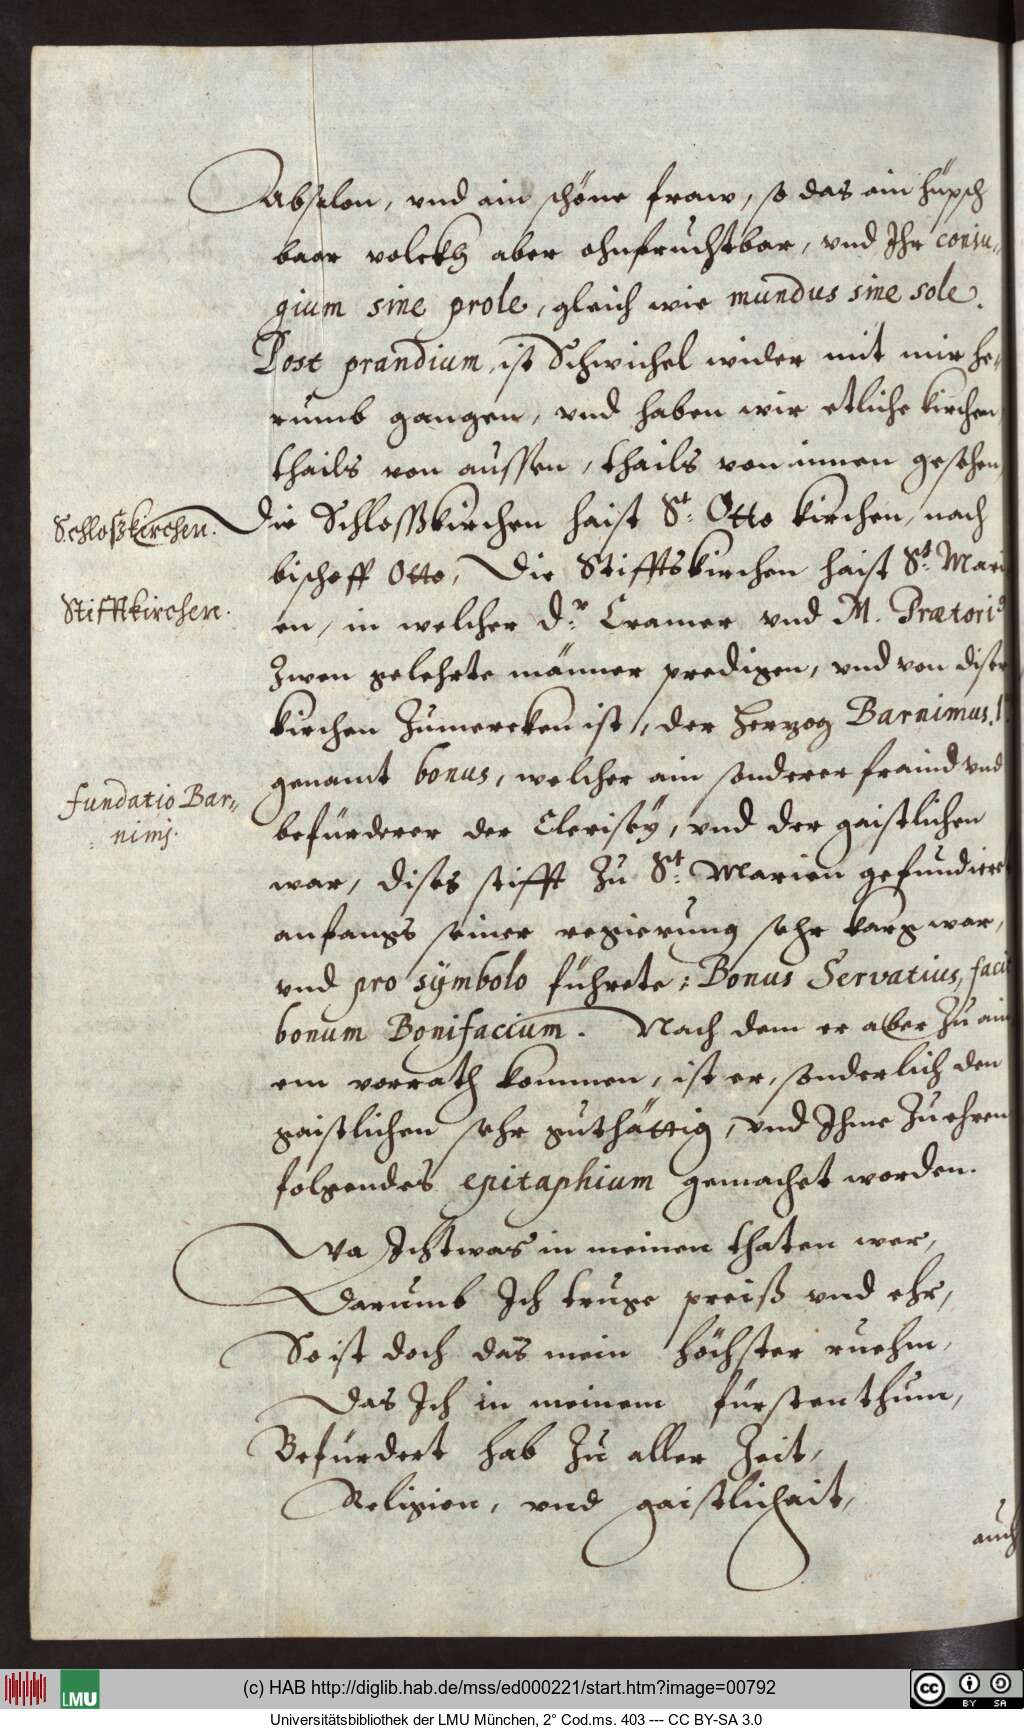 Absalon, vnd ain schöne fraw, so das ain hüpsch
baar volckhs aber ohnfruchtbar, vnd Ihr coniu-
gium sine prole, gleich wie mundus sine sole.
Post prandium, ist Schwichel wider mit mir he-
rumb gangen, vnd haben wir etliche kirchen
thails von aussen, thails von innen gesehen,
Schloßkirchen.
Die Schlosskirchen haist St: Otto kirchen, nach
bischoff Otto, Die Stifftskirchen haist St: Mari
Stifftkirchen.
en, in welcher Dr: Cramer vnd M. Prætori9
Zwen gelehrte männer predigen, vnd von diser
kirchen Zumercken ist, der Herzog Barnimus. I.
genamt bonus, welcher ain sonderer fraind vnd
fundatio Bar-
nimj.
befürderer der Clerisey, vnd der gaistlichen
war, dises stifft Zu St: Marien gefundieret
anfangs seiner regierung sehr karg war,
vnd pro sÿmbolo führete: Bonus Servatius, facit
bonum Bonifacium. Nach dem er aber Zu ain
em vorrath kommen, ist er, sonderlich den
gaistlichen sehr guthättig, vnd Ihme Zu ehren
folgendes epitaphium gemachet worden.
Wa Ichtwas in meinen thaten wer,
Darumb Ich truge preiß vnd ehr,
So ist doch das mein höchster ruehm,
Das Ich in meinem fürstenthum,
Befürdert hab Zu aller Zeit,
Religion, vnd gaistlichait,
auch
(c) HAB http://diglib.hab.de/mss/ed000221/start.htm?image=00792
LMU
BY SA
Universitätsbibliothek der LMU München, 2° Cod.ms. 403 --- CC BY-SA 3.0